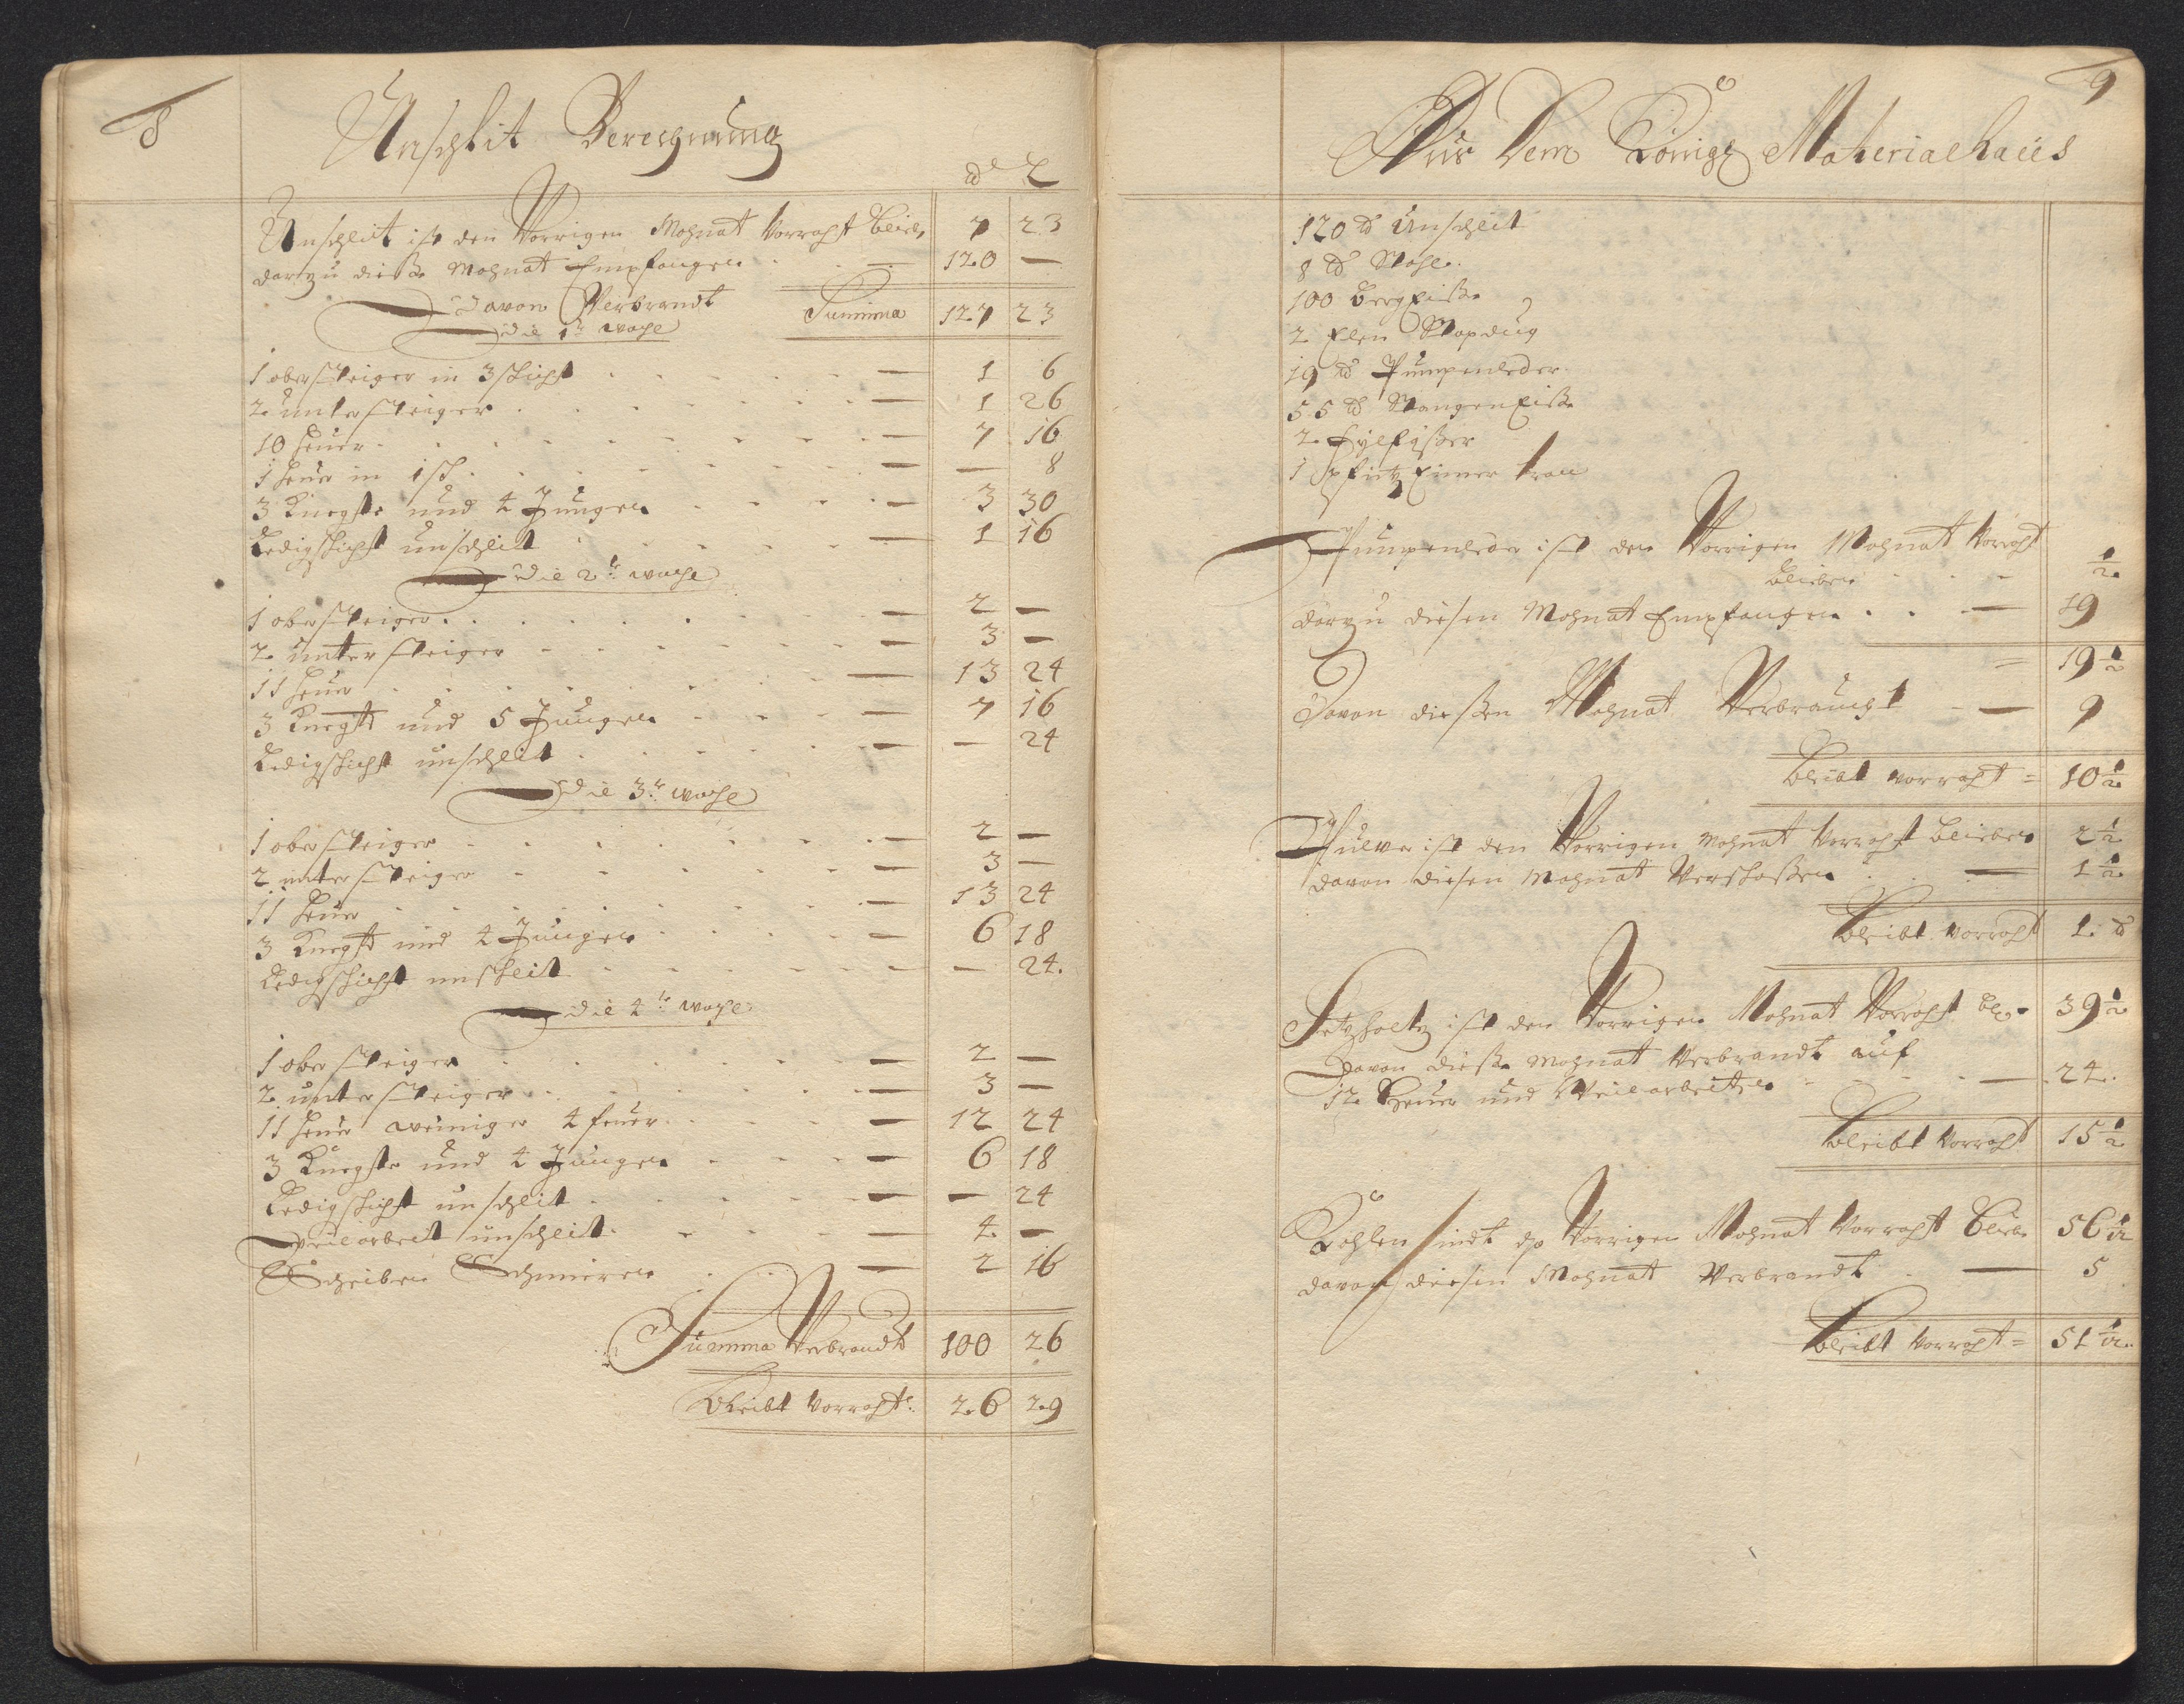 8
Unschlit Berechnung
℔ L
Unschleit ist den Vorrigen Mohnat Vorraht bleib, 7 23
darzu dieße Mohnat Empfangen 120 —
Davon Verbrandt Summa 127 23
Die 1te woche
1 obersteiger in 3 schicht 1 6
2 untersteiger 1 26
10 heuer 7 16
1 heuer in 1 sch. — 8
3 Knechte und 4 Jungen 3 30
Ledigschicht unschleit 1 16
Die 2te woche
1 obersteiger 2 —
2 untersteiger 3 —
11 heuer 13 24
3 Knecht und 5 Jungen 7 16
Ledigschicht unschleit — 24
Die 3te woche
1 obersteiger 2 —
2 untersteiger 3 —
11 heuer 13 24
3 Knecht und 4 Jungen 6 18
Ledigschicht unschleit — 24.
Die 4te woche
1 obersteiger 2 —
2 untersteiger 3 —
11 heuer weiniger 4 feuer 12 24
3 Knechte und 4 Jungen 6 18
Ledigschicht unschleit — 24
Weilarbeit unschleit 4 —
Scheiben Schmieren 2 16
Summa Verbrandt 100 26
Bleibt Vorraht 26 29
9
Aus Dem Königl Materialhaus
120 ℔ Unschleit
8 ℔ Stahl.
100 Bergeisen
2 Elen
19 ℔ Pumpenleder
55 ℔ Stangen Eisen
2
1 Eimer tran
Pumpenleder ist den Vorrigen Mohnat Vorraht
blieben ½
darzu diesen Mohnat Empfangen 19
= 19½
Davon dießen Mohnat Verbraucht 9
Bleibt vorraht = 10½
Pulver ist den Vorrigen Mohnat Vorraht blieben 2½
davon diesen Mohnat Verschoßen 1½
Bleibt Vorraht 1 ℔
Setzholtz ist den Vorrigen Mohnat Vorraht bl. 39½
Davon dieße Mohnat Verbrandt auf
12 Heuer und Weilarbeit 24.
Bleibt Vorraht 15½
Kohlen sindt Vorrigen Mohnat Vorraht blieb. 56
davon diesen Mohnat Verbrandt 5
Bleibt Vorraht = 51